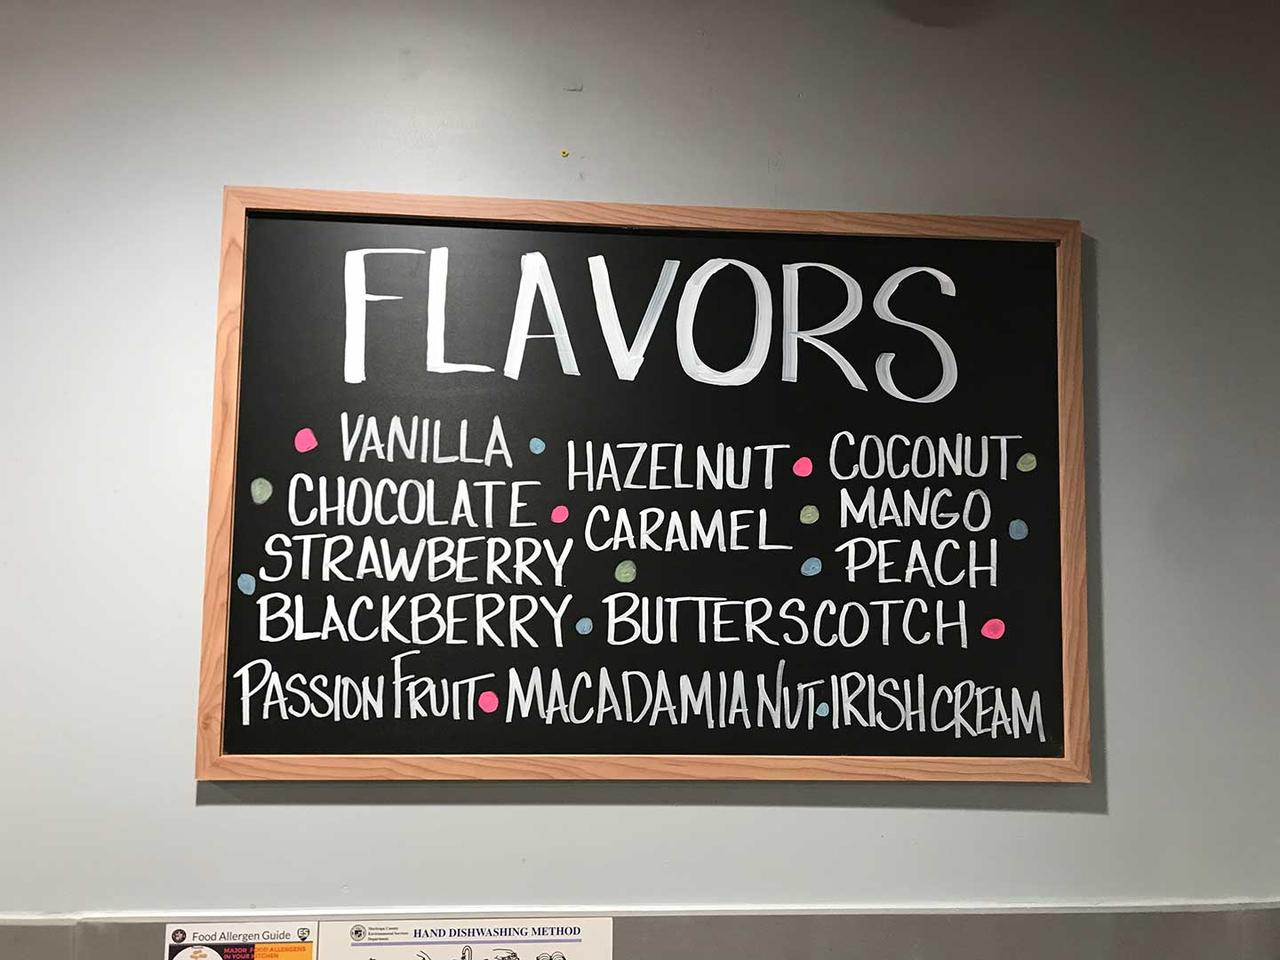 FLAVORS
VANILLA
HAZELNUT
COCONUT
CHOCOLATE
CARAMEL
MANGO
STRAWBERRY
PEACH
BLACKBERRY
BUTTERSCOTCH
PASSION FRUIT
MACADAMIA NUT
IRISH CREAM
Food Allergen Guide
MAJOR FOOD ALLERGENS
IN YOUR KITCHEN
Maricopa County
Environmental Services
Department
HAND DISHWASHING METHOD